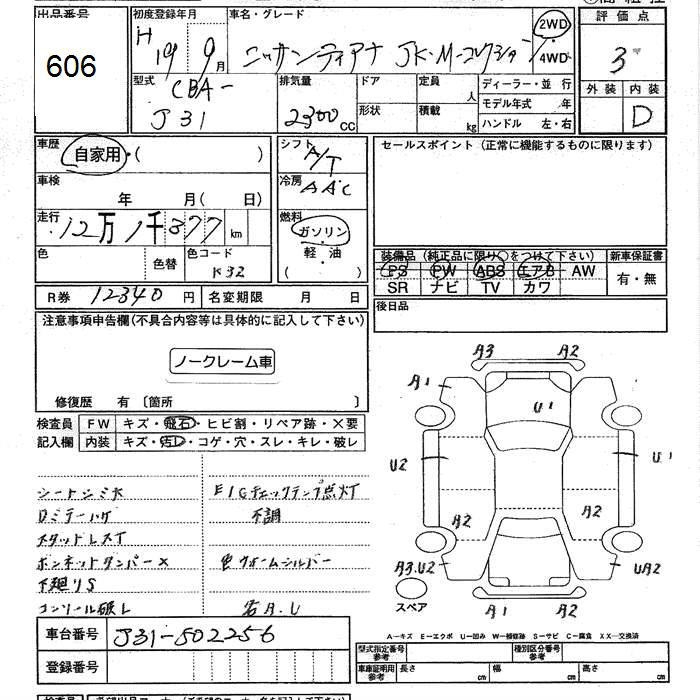 出品番号 初度登録年月 車名・グレード 2WD 評価点
606 H 19 9月 ニッサンティアナ JK・M- 4WD 3
型式 排気量 ドア 定員 人 ディーラー・並行 外装 内装
CBA- J31 2300cc 形状 積載 kg モデル年式 年 D
ハンドル 左・右
車歴 自家用・( ) シフト A/T セールスポイント (正常に機能するものに限ります)
車検 年 月( 日) 冷房 AAC
走行 12万1千377km 燃料 ガソリン・軽・油 ( )
色 色替 色コード K32 装備品 (純正品に限り○をつけて下さい) 新車保証書
PS PW ABS エアB AW 有・無
SR ナビ TV カワ
R券 12340円 名変期限 月 日 後日品
注意事項申告欄(不具合内容等は具体的に記入して下さい)
ノークレーム車
修復歴 有〔箇所 〕
検査員記入欄 FW キズ・飛石・ヒビ割・リペア跡・×要
内装 キズ・汚レ・コゲ・穴・スレ・キレ・破レ
シートシミ大 E/Gチェックランプ点灯
不調
スタッドレスT
ボンネットダンパー× 色 ウォームシルバー
下廻りS
コンソール破レ 右A.U
A3 A2
A1 U1
U2 U1
A2 A2
A3.U2 UA2
スペア A1 A2
A-キズ E-エクボ U-凹み W-補修跡 S-サビ C-腐食 XX-交換済
車台番号 J31-502256 型式指定番号 参考 種別区分番号 参考
登録番号 車庫証明用 参考 長さ cm 幅 cm 高さ cm